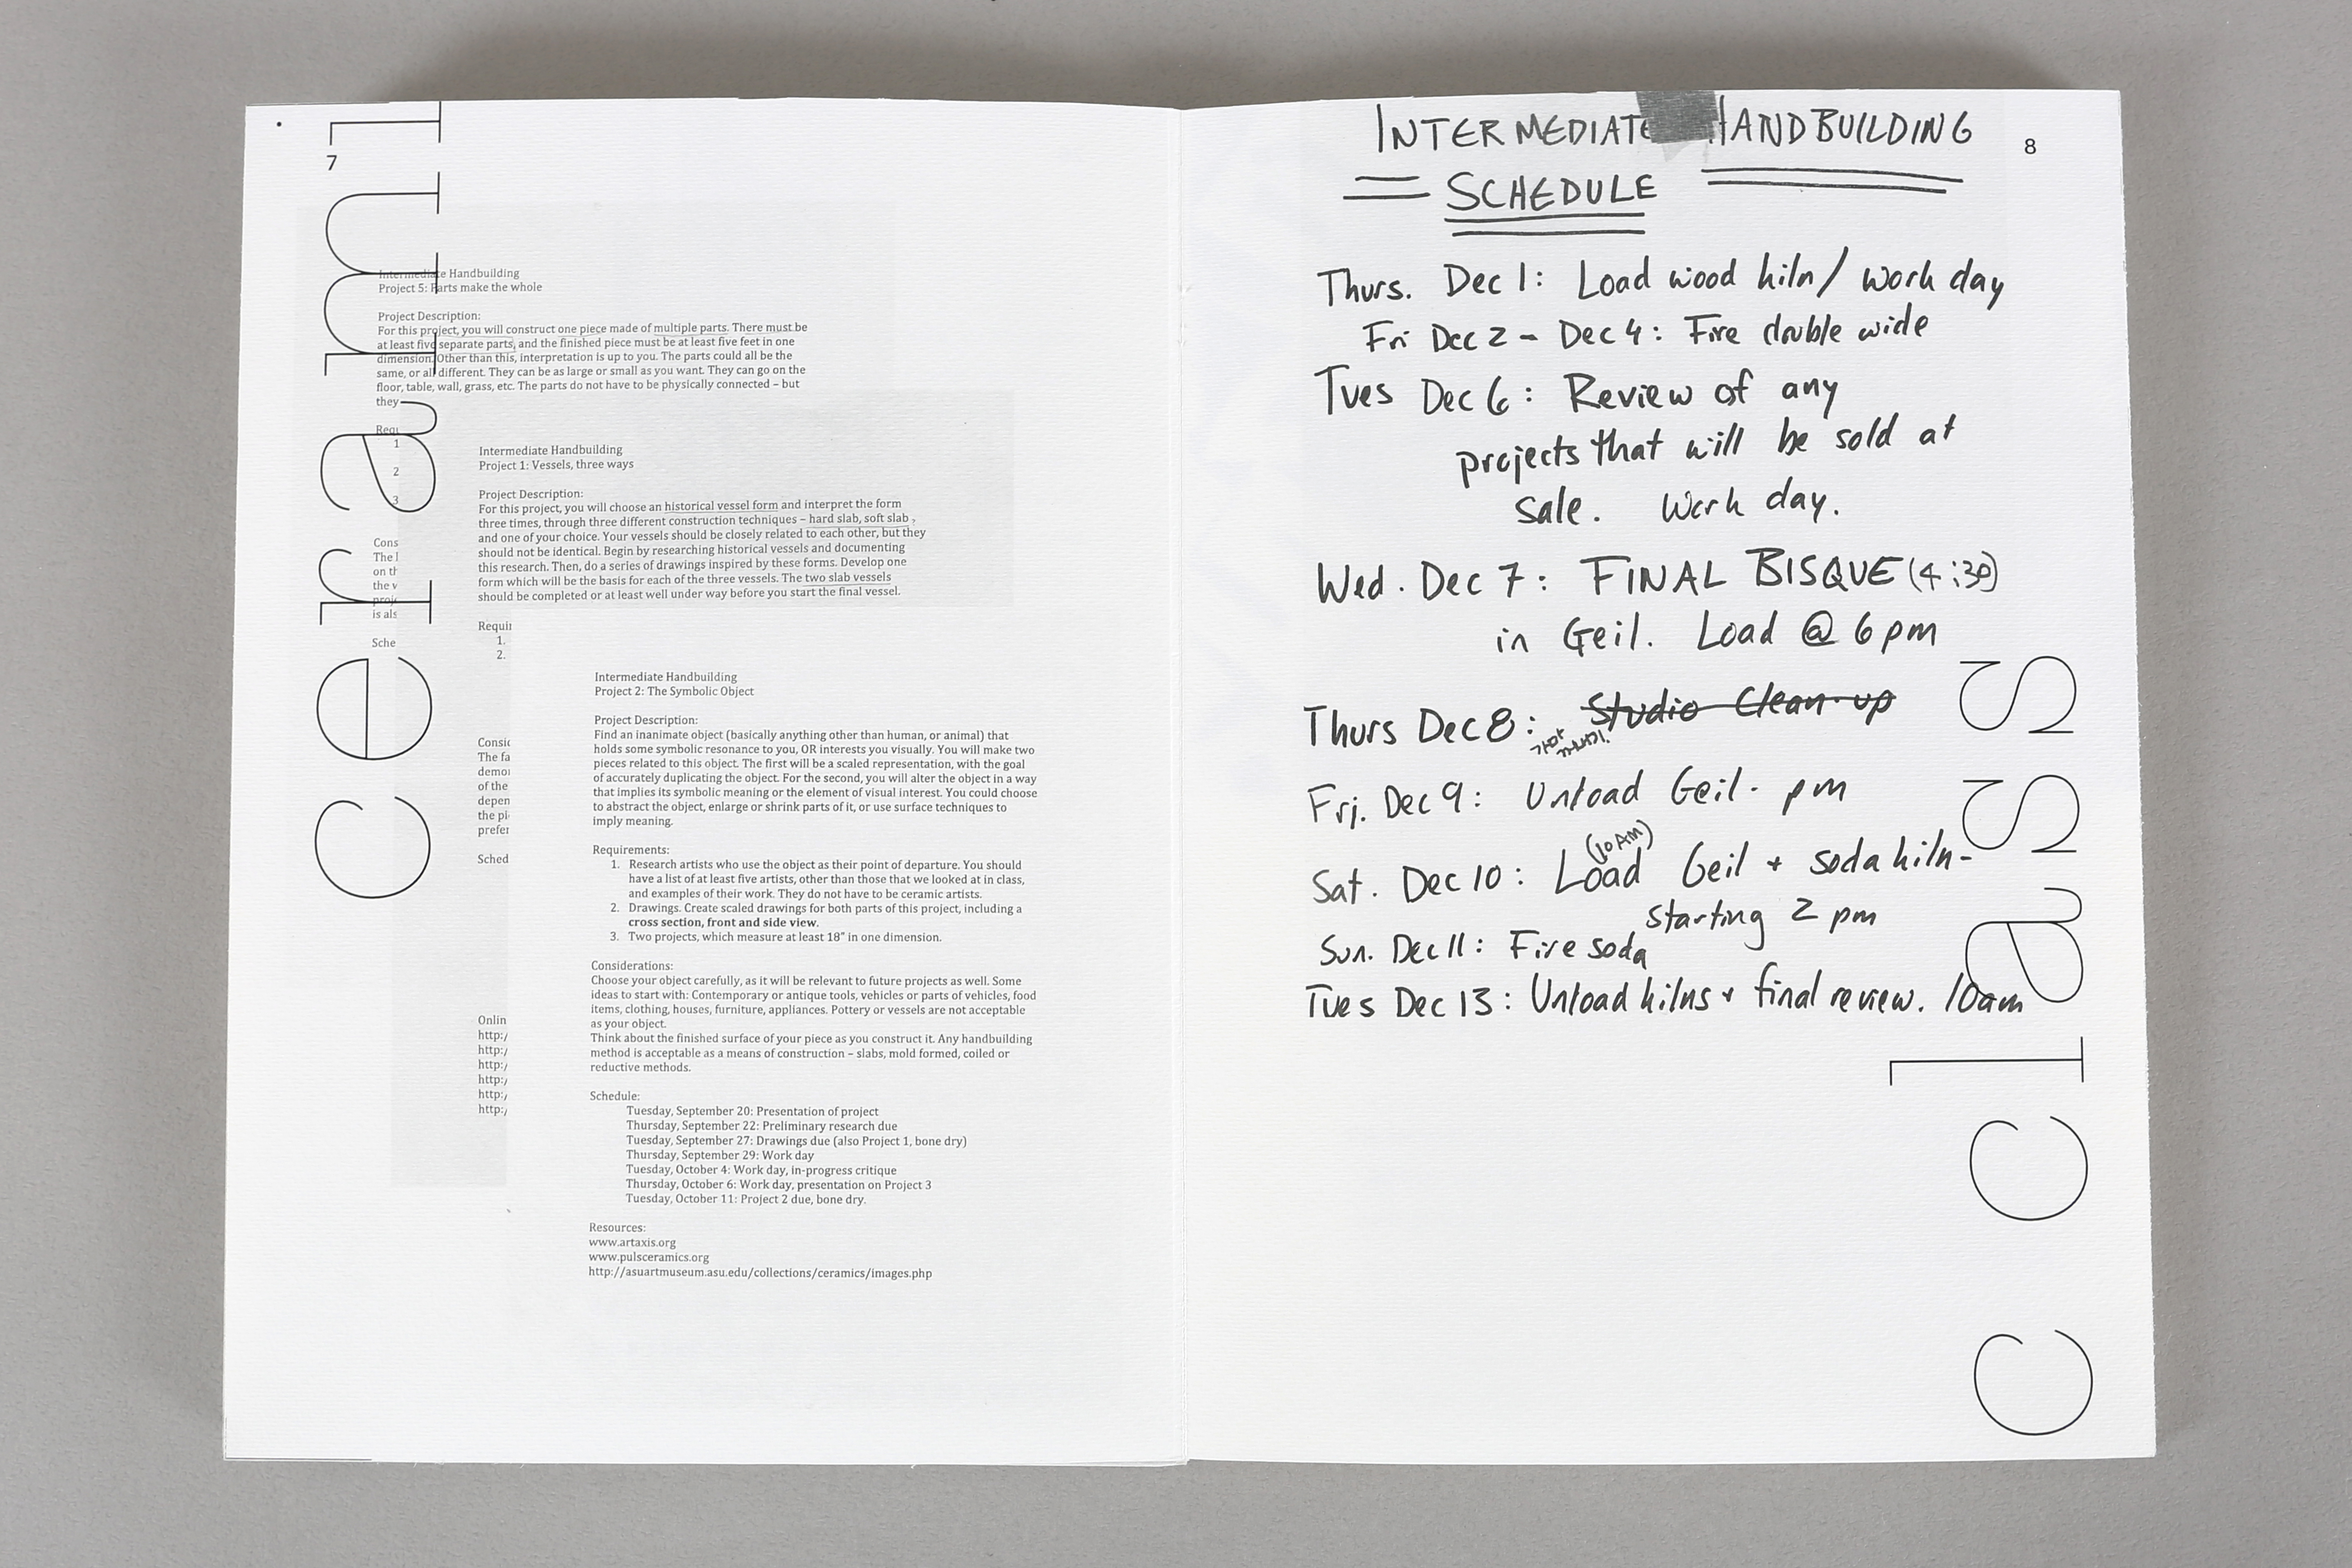 7
cerami
Intermediate Handbuilding
Project 5: Parts make the whole
Project Description:
For this project, you will construct one piece made of multiple parts. There must be
at least five separate parts, and the finished piece must be at least five feet in one
dimension. Other than this, interpretation is up to you. The parts could all be the
same, or all different. They can be as large or small as you want. They can go on the
floor, table, wall, grass, etc. The parts do not have to be physically connected – but
they
Requ
1
2
3
Cons
The l
on th
the v
proje
is als
Sche
Intermediate Handbuilding
Project 1: Vessels, three ways
Project Description:
For this project, you will choose an historical vessel form and interpret the form
three times, through three different construction techniques – hard slab, soft slab,
and one of your choice. Your vessels should be closely related to each other, but they
should not be identical. Begin by researching historical vessels and documenting
this research. Then, do a series of drawings inspired by these forms. Develop one
form which will be the basis for each of the three vessels. The two slab vessels
should be completed or at least well under way before you start the final vessel.
Requir
1.
2.
Consid
The fa
demon
of the
depen
the pi
prefer
Sched
Onlin
http:/
http:/
http:/
http:/
http:/
http:/
Intermediate Handbuilding
Project 2: The Symbolic Object
Project Description:
Find an inanimate object (basically anything other than human, or animal) that
holds some symbolic resonance to you, OR interests you visually. You will make two
pieces related to this object. The first will be a scaled representation, with the goal
of accurately duplicating the object. For the second, you will alter the object in a way
that implies its symbolic meaning or the element of visual interest. You could choose
to abstract the object, enlarge or shrink parts of it, or use surface techniques to
imply meaning.
Requirements:
1. Research artists who use the object as their point of departure. You should
have a list of at least five artists, other than those that we looked at in class,
and examples of their work. They do not have to be ceramic artists.
2. Drawings. Create scaled drawings for both parts of this project, including a
cross section, front and side view.
3. Two projects, which measure at least 18" in one dimension.
Considerations:
Choose your object carefully, as it will be relevant to future projects as well. Some
ideas to start with: Contemporary or antique tools, vehicles or parts of vehicles, food
items, clothing, houses, furniture, appliances. Pottery or vessels are not acceptable
as your object.
Think about the finished surface of your piece as you construct it. Any handbuilding
method is acceptable as a means of construction – slabs, mold formed, coiled or
reductive methods.
Schedule:
Tuesday, September 20: Presentation of project
Thursday, September 22: Preliminary research due
Tuesday, September 27: Drawings due (also Project 1, bone dry)
Thursday, September 29: Work day
Tuesday, October 4: Work day, in-progress critique
Thursday, October 6: Work day, presentation on Project 3
Tuesday, October 11: Project 2 due, bone dry.
Resources:
www.artaxis.org
www.pulsceramics.org
http://asuartmuseum.asu.edu/collections/ceramics/images.php
8
INTERMEDIATE HANDBUILDING
SCHEDULE
Thurs. Dec 1: Load wood kiln / work day
Fri Dec 2 - Dec 4: Fire double wide
Tues Dec 6: Review of any
projects that will be sold at
sale. Work day.
Wed. Dec 7: FINAL BISQUE (4:30)
in Geil. Load @ 6 pm
Thurs Dec 8: Studio Clean-up
Fri. Dec 9: Unload Geil. pm
(10 AM)
Sat. Dec 10: Load Geil + soda kiln -
starting 2 pm
Sun. Dec 11: Fire soda
Tues Dec 13: Unload kilns + final review. 10am
c class